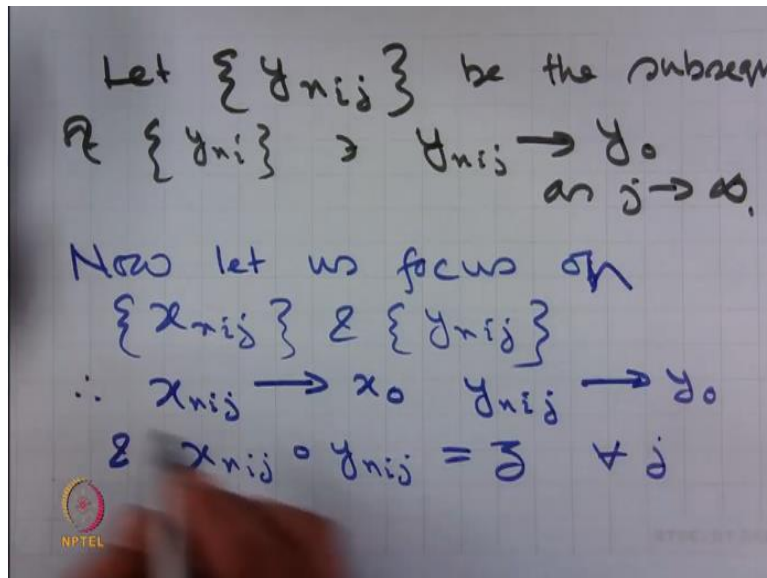 Let {y_nij} be the subsequ
of {y_ni} ∋ y_nij → y_0
as j → ∞.
Now let us focus on
{x_nij} & {y_nij}
∴ x_nij → x_0 y_nij → y_0
& x_nij ∘ y_nij = z ∀ j
NPTEL